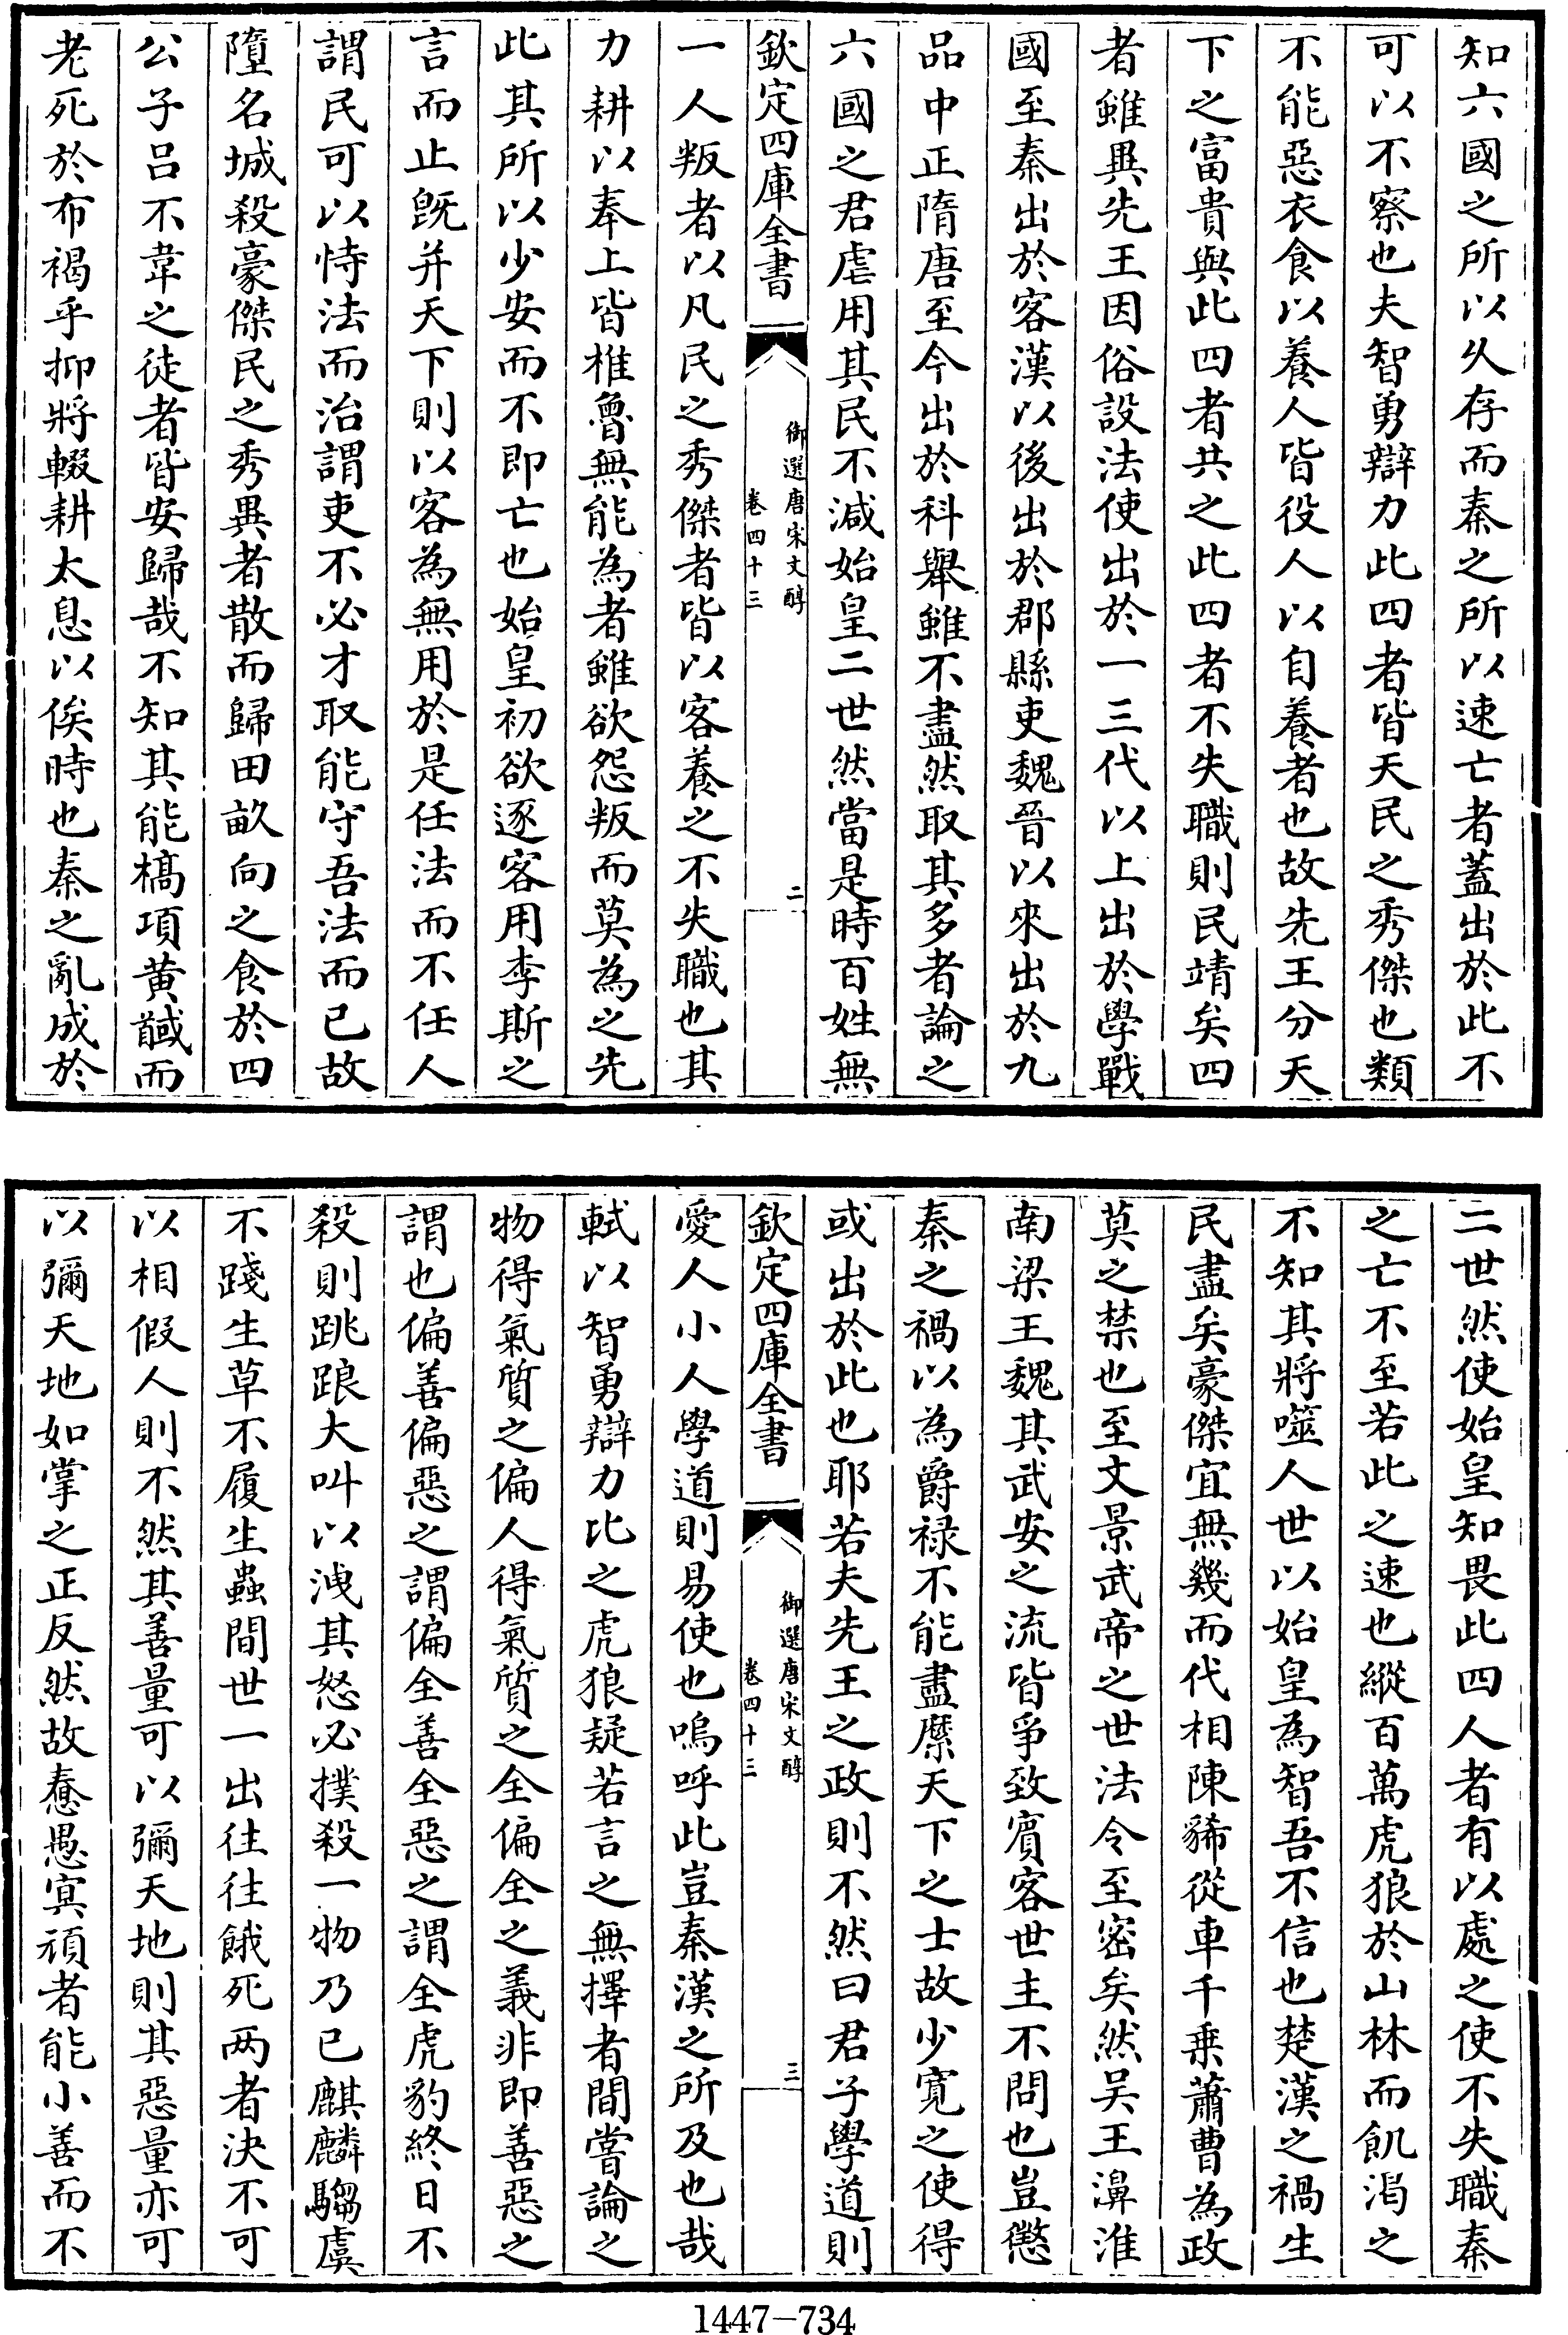 知六國之所以久存而秦之所以速亡者蓋出於此不
可以不察也夫智勇辯力此四者皆天民之秀傑也類
不能惡衣食以養人皆役人以自養者也故先王分天
下之富貴與此四者共之此四者不失職則民靖矣四
者雖異先王因俗設法使出於一三代以上出於學戰
國至秦出於客漢以後出於郡縣吏魏晉以來出於九
品中正隋唐至今出於科舉雖不盡然取其多者論之
六國之君虐用其民不減始皇二世然當是時百姓無
欽定四庫全書
御選唐宋文醇
卷四十三
二
一人叛者以凡民之秀傑者皆以客養之不失職也其
力耕以奉上皆椎魯無能為者雖欲怨叛而莫為之先
此其所以少安而不即亡也始皇初欲逐客用李斯之
言而止旣并天下則以客為無用於是任法而不任人
謂民可以恃法而治謂吏不必才取能守吾法而已故
墮名城殺豪傑民之秀異者散而歸田畝向之食於四
公子呂不韋之徒者皆安歸哉不知其能槁項黄馘而
老死於布褐乎抑將輟耕太息以俟時也秦之亂成於
二世然使始皇知畏此四人者有以處之使不失職秦
之亡不至若此之速也縱百萬虎狼於山林而飢渴之
不知其將噬人世以始皇為智吾不信也楚漢之禍生
民盡矣豪傑宜無幾而代相陳豨從車千乗蕭曹為政
莫之禁也至文景武帝之世法令至密矣然吴王濞淮
南梁王魏其武安之流皆爭致賓客世主不問也豈懲
秦之禍以為爵禄不能盡縻天下之士故少寛之使得
或出於此也耶若夫先王之政則不然曰君子學道則
欽定四庫全書
御選唐宋文醇
卷四十三
三
愛人小人學道則易使也嗚呼此豈秦漢之所及也哉
軾以智勇辯力比之虎狼疑若言之無擇者間嘗論之
物得氣質之偏人得氣質之全偏全之義非即善惡之
謂也偏善偏惡之謂偏全善全惡之謂全虎豹終日不
殺則跳踉大叫以洩其怒必撲殺一物乃已麒麟騶虞
不踐生草不履生蟲間世一出往往餓死两者決不可
以相假人則不然其善量可以彌天地則其惡量亦可
以彌天地如掌之正反然故憃愚寘頑者能小善而不
1447-734